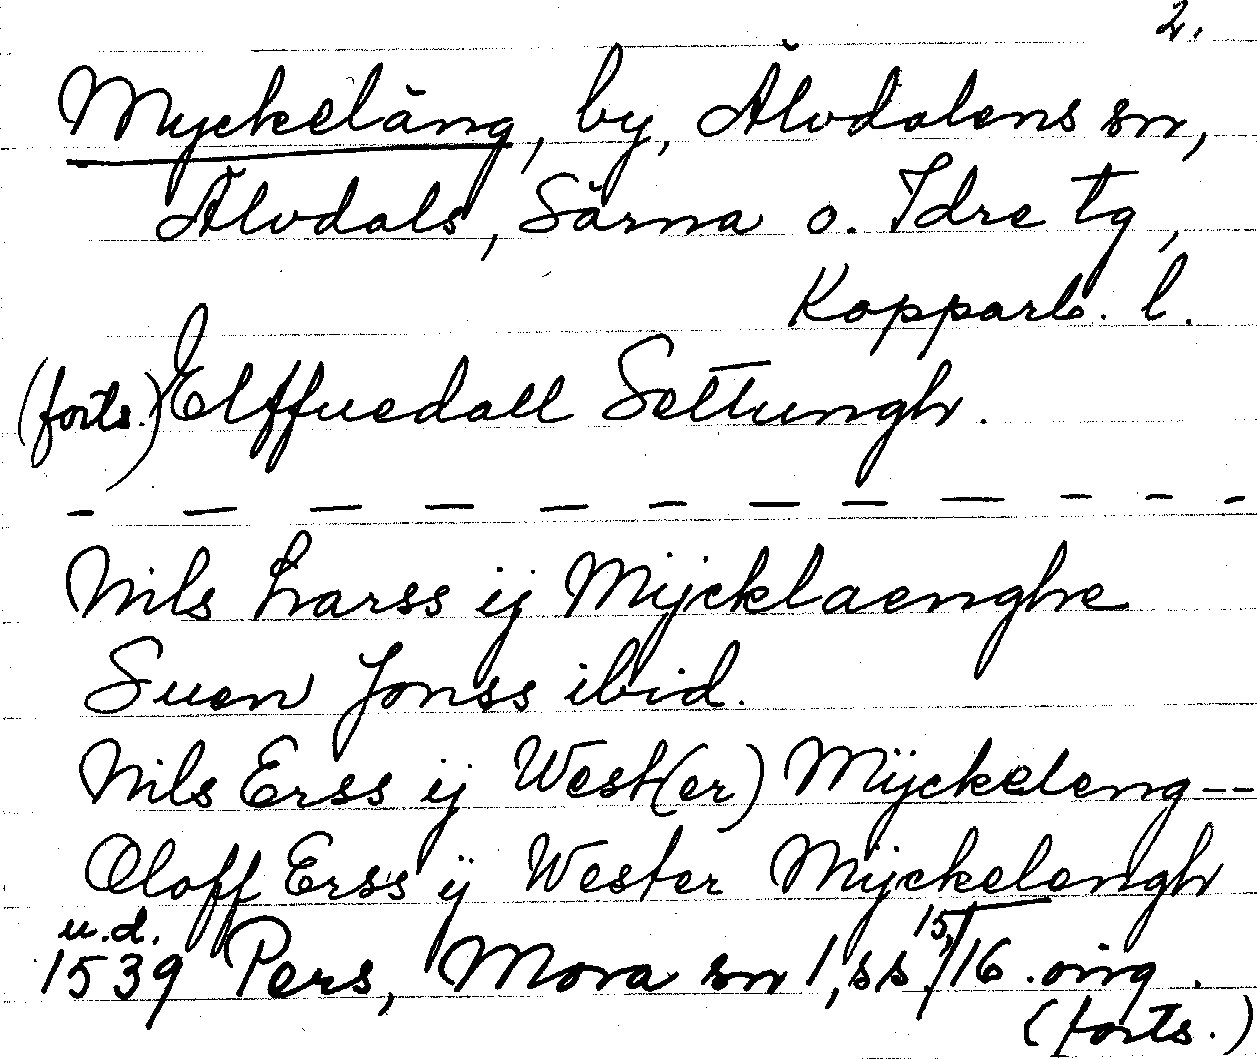 2.
Myckeläng, by, Älvdalens sn,
Älvdals, Särna o. Idre tg,
Kopparb. l.
(forts.) Elffuedall Settungh.
- - - - - - - - - - - -
Nils Larss ij Mijcklaenghe
Suen Jonss ibid.
Nils Erss ij West(er) Mÿckeleng--
Oloff Erss ij Wester Mijckelengh
u.d.
1539 Pers, Mora sn 1, ss. 15/16. orig.
(forts.)